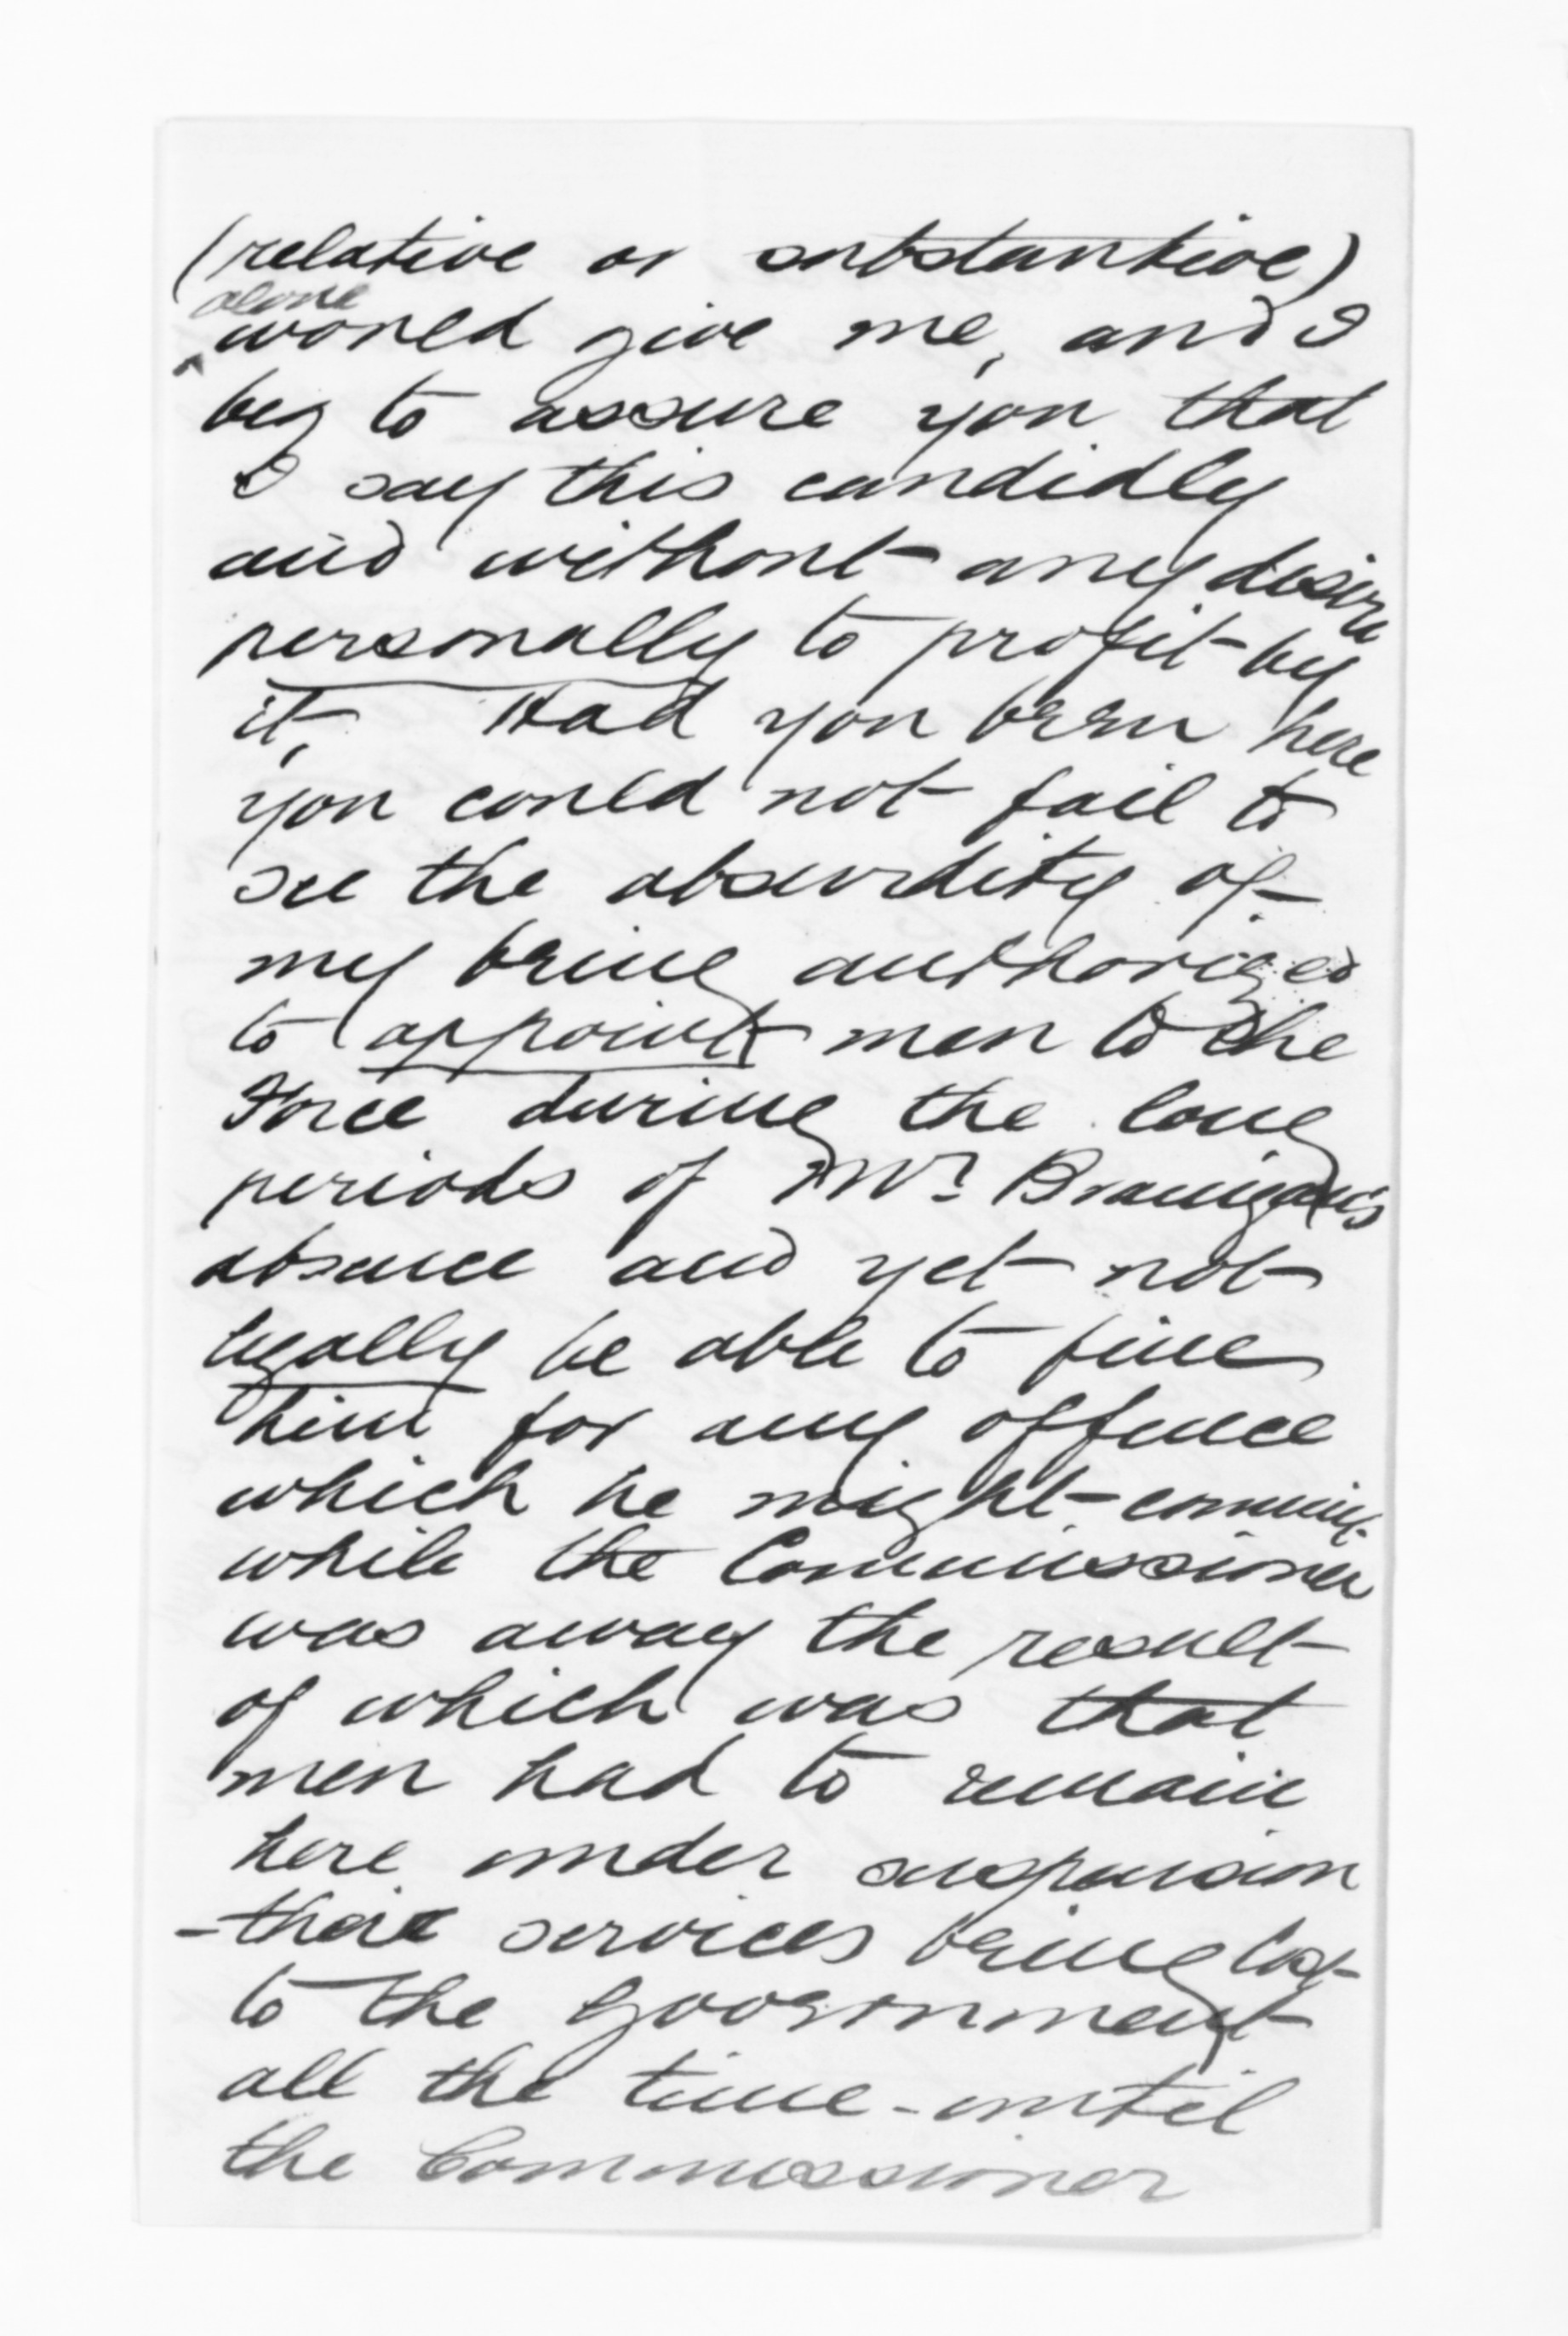 (relative or substantive)
alone
would give me, and I
beg to assure you that
I say this candidly
and without any desire
personally to profit by
it, Had you been here
you could not fail to
see the absurdity of
my being authorized
to appoint men to the
Force during the long
periods of Mr Branigan's
absence and yet not
legally be able to fine
him for any offence
which he might commit
while the Commissioner
was away the result
of which was that
men had to remain
here under suspension
- their services being lost
to the Government
all the time - until
the Commissioner